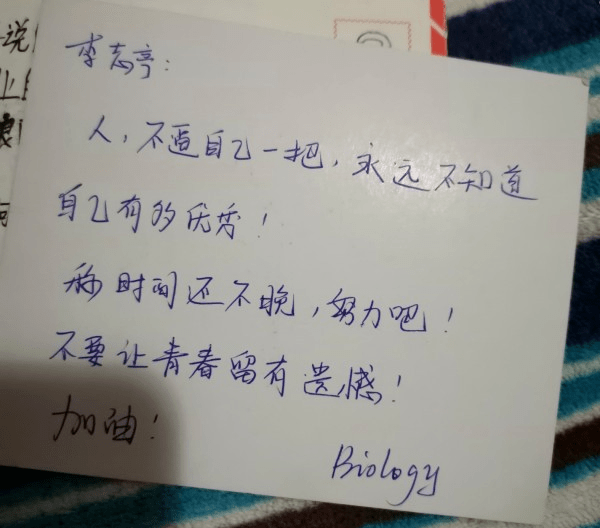 说
业
李志亭：
人，不逼自己一把，永远不知道
自己有多优秀！
趁时间还不晚，努力吧！
不要让青春留有遗憾！
加油！
Biology